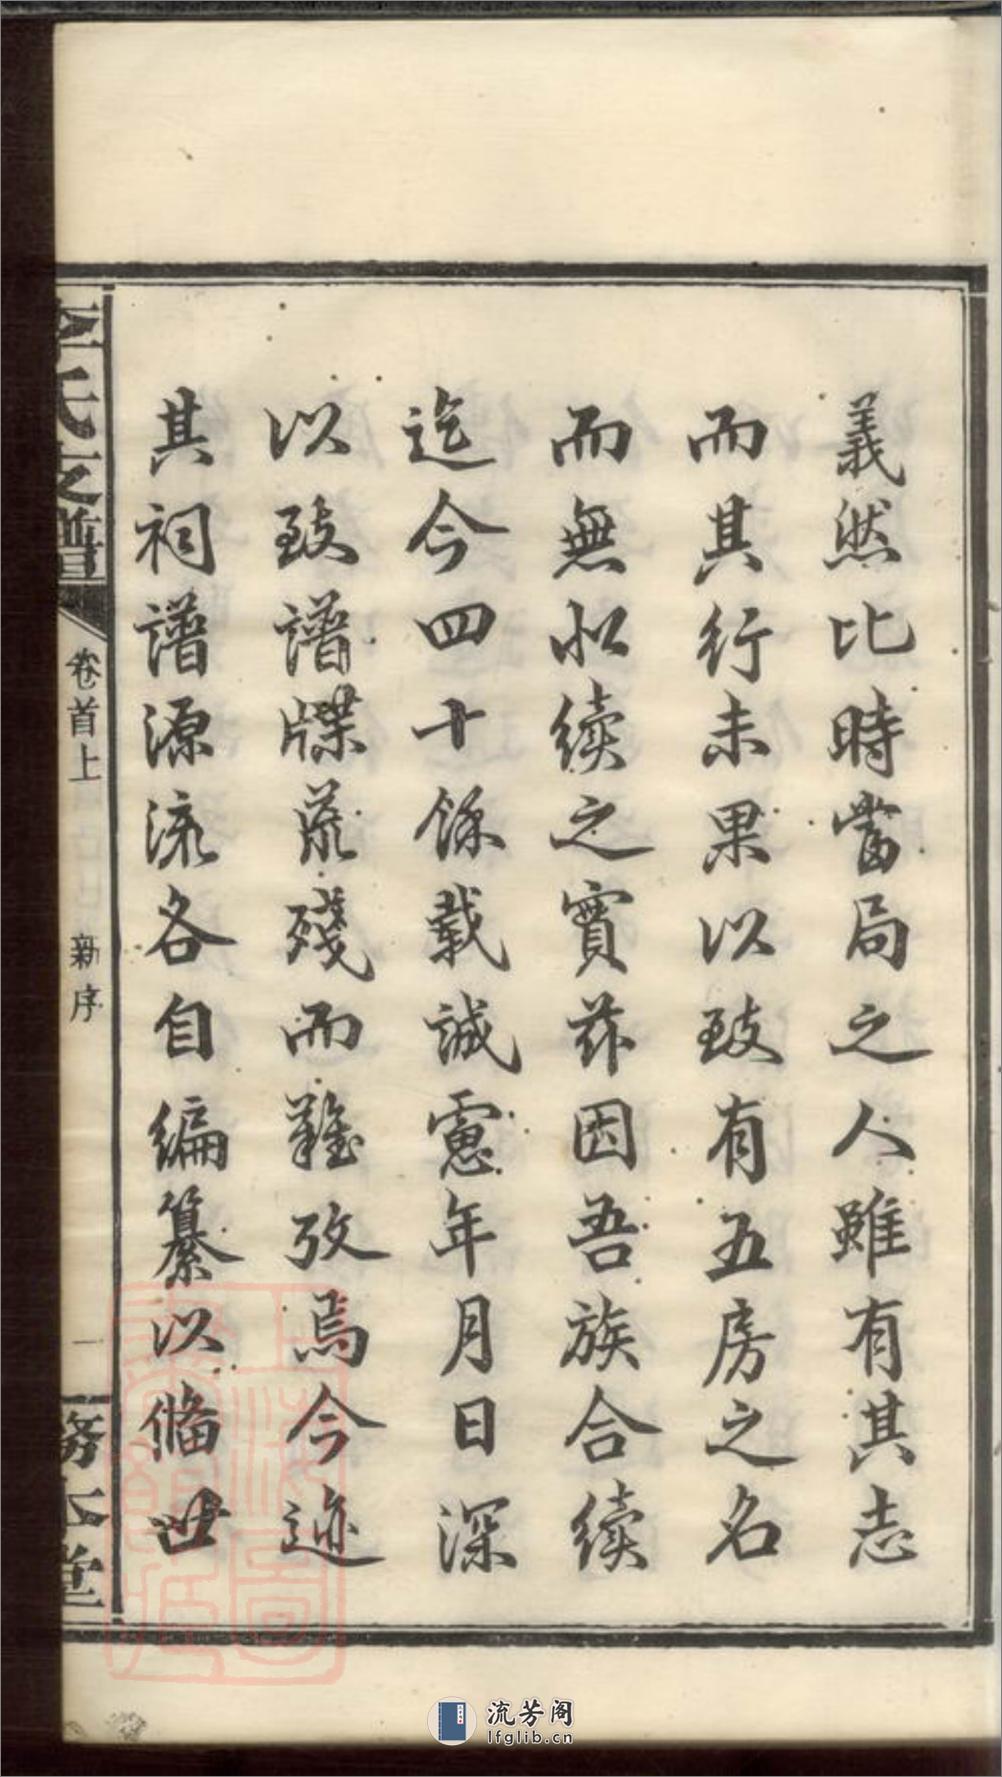 義然比時當局之人雖有其志
而其行未果以致有五房之名
而無以續之實茲因吾族合續
迄今四十餘載誠慮年月日深
以致譜牒荒殘而難攷焉今迹
其祠譜源流各自編纂以備世
李氏支譜
卷首上
新序
一
務本堂
流芳阁
lfglib.cn